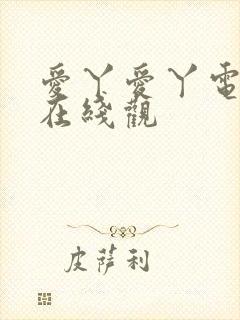 愛丫愛丫電
在綫觀
皮薩利